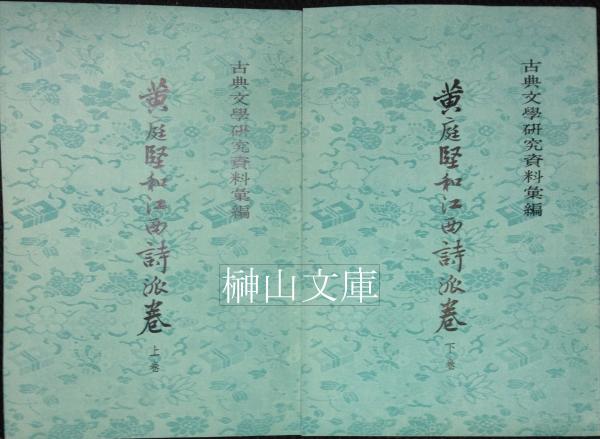 古典文學研究資料彙編
黄庭堅和江西詩派卷
上卷
古典文學研究資料彙編
黄庭堅和江西詩派卷
下卷
榊山文庫